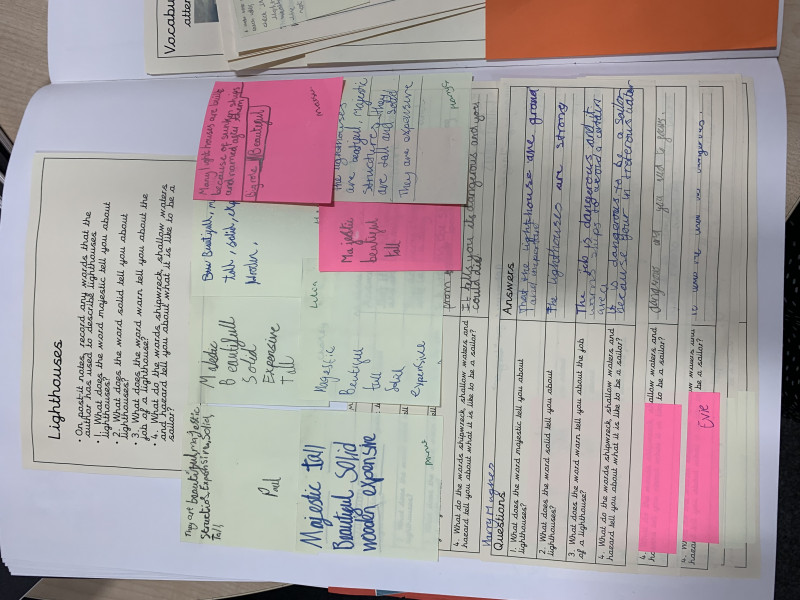 Vocabu
atten
Lighthouses
• On post-it notes, record any words that the
author has used to describe lighthouses
• 1. What does the word majestic tell you about
lighthouses?
• 2. What does the word solid tell you about
lighthouses?
• 3. What does the word warn tell you about the
job of a lighthouse?
• 4. What do the words shipwreck, shallow waters
and hazard tell you about what it is like to be a
sailor?
Many lighthouses are built
because of sunken ships
and named after them
Beautiful
Beautiful,
tall, solid,
Majestic
Beautifull
Solid
Expensive
Tall
They are beautiful, majestic
Expensive, Solid,
Tall
the lighthouses
are beatiful, majestic
structures they
are tall and solid
They are expensive
Majestic
beautiful
tall
Majestic
Beautiful
tall
Solid
expensive
Majestic tall
Beautiful Solid
woody expensive
from
4. What do the words shipwreck, shallow waters and
hazard tell you about what it is like to be a sailor?
It tells you it's dangerous and you
could die
Harry Hughes
Questions
Answers
1. What does the word majestic tell you about
lighthouses?
That the lighthouse are grand
and important
2. What does the word solid tell you about
lighthouses?
the lighthouses are strong
3. What does the word warn tell you about the job
of a lighthouse?
The job is dangerous and it
warns ships to avoid a certain
area
4. What do the words shipwreck, shallow waters and
hazard tell you about what it is like to be a sailor?
It is dangerous to be a sailor
because your in treterous water
4.
allow waters and
o be a sailor?
haz
and you need to
4. W
waters and
o be a sailor?
hazard
Evie